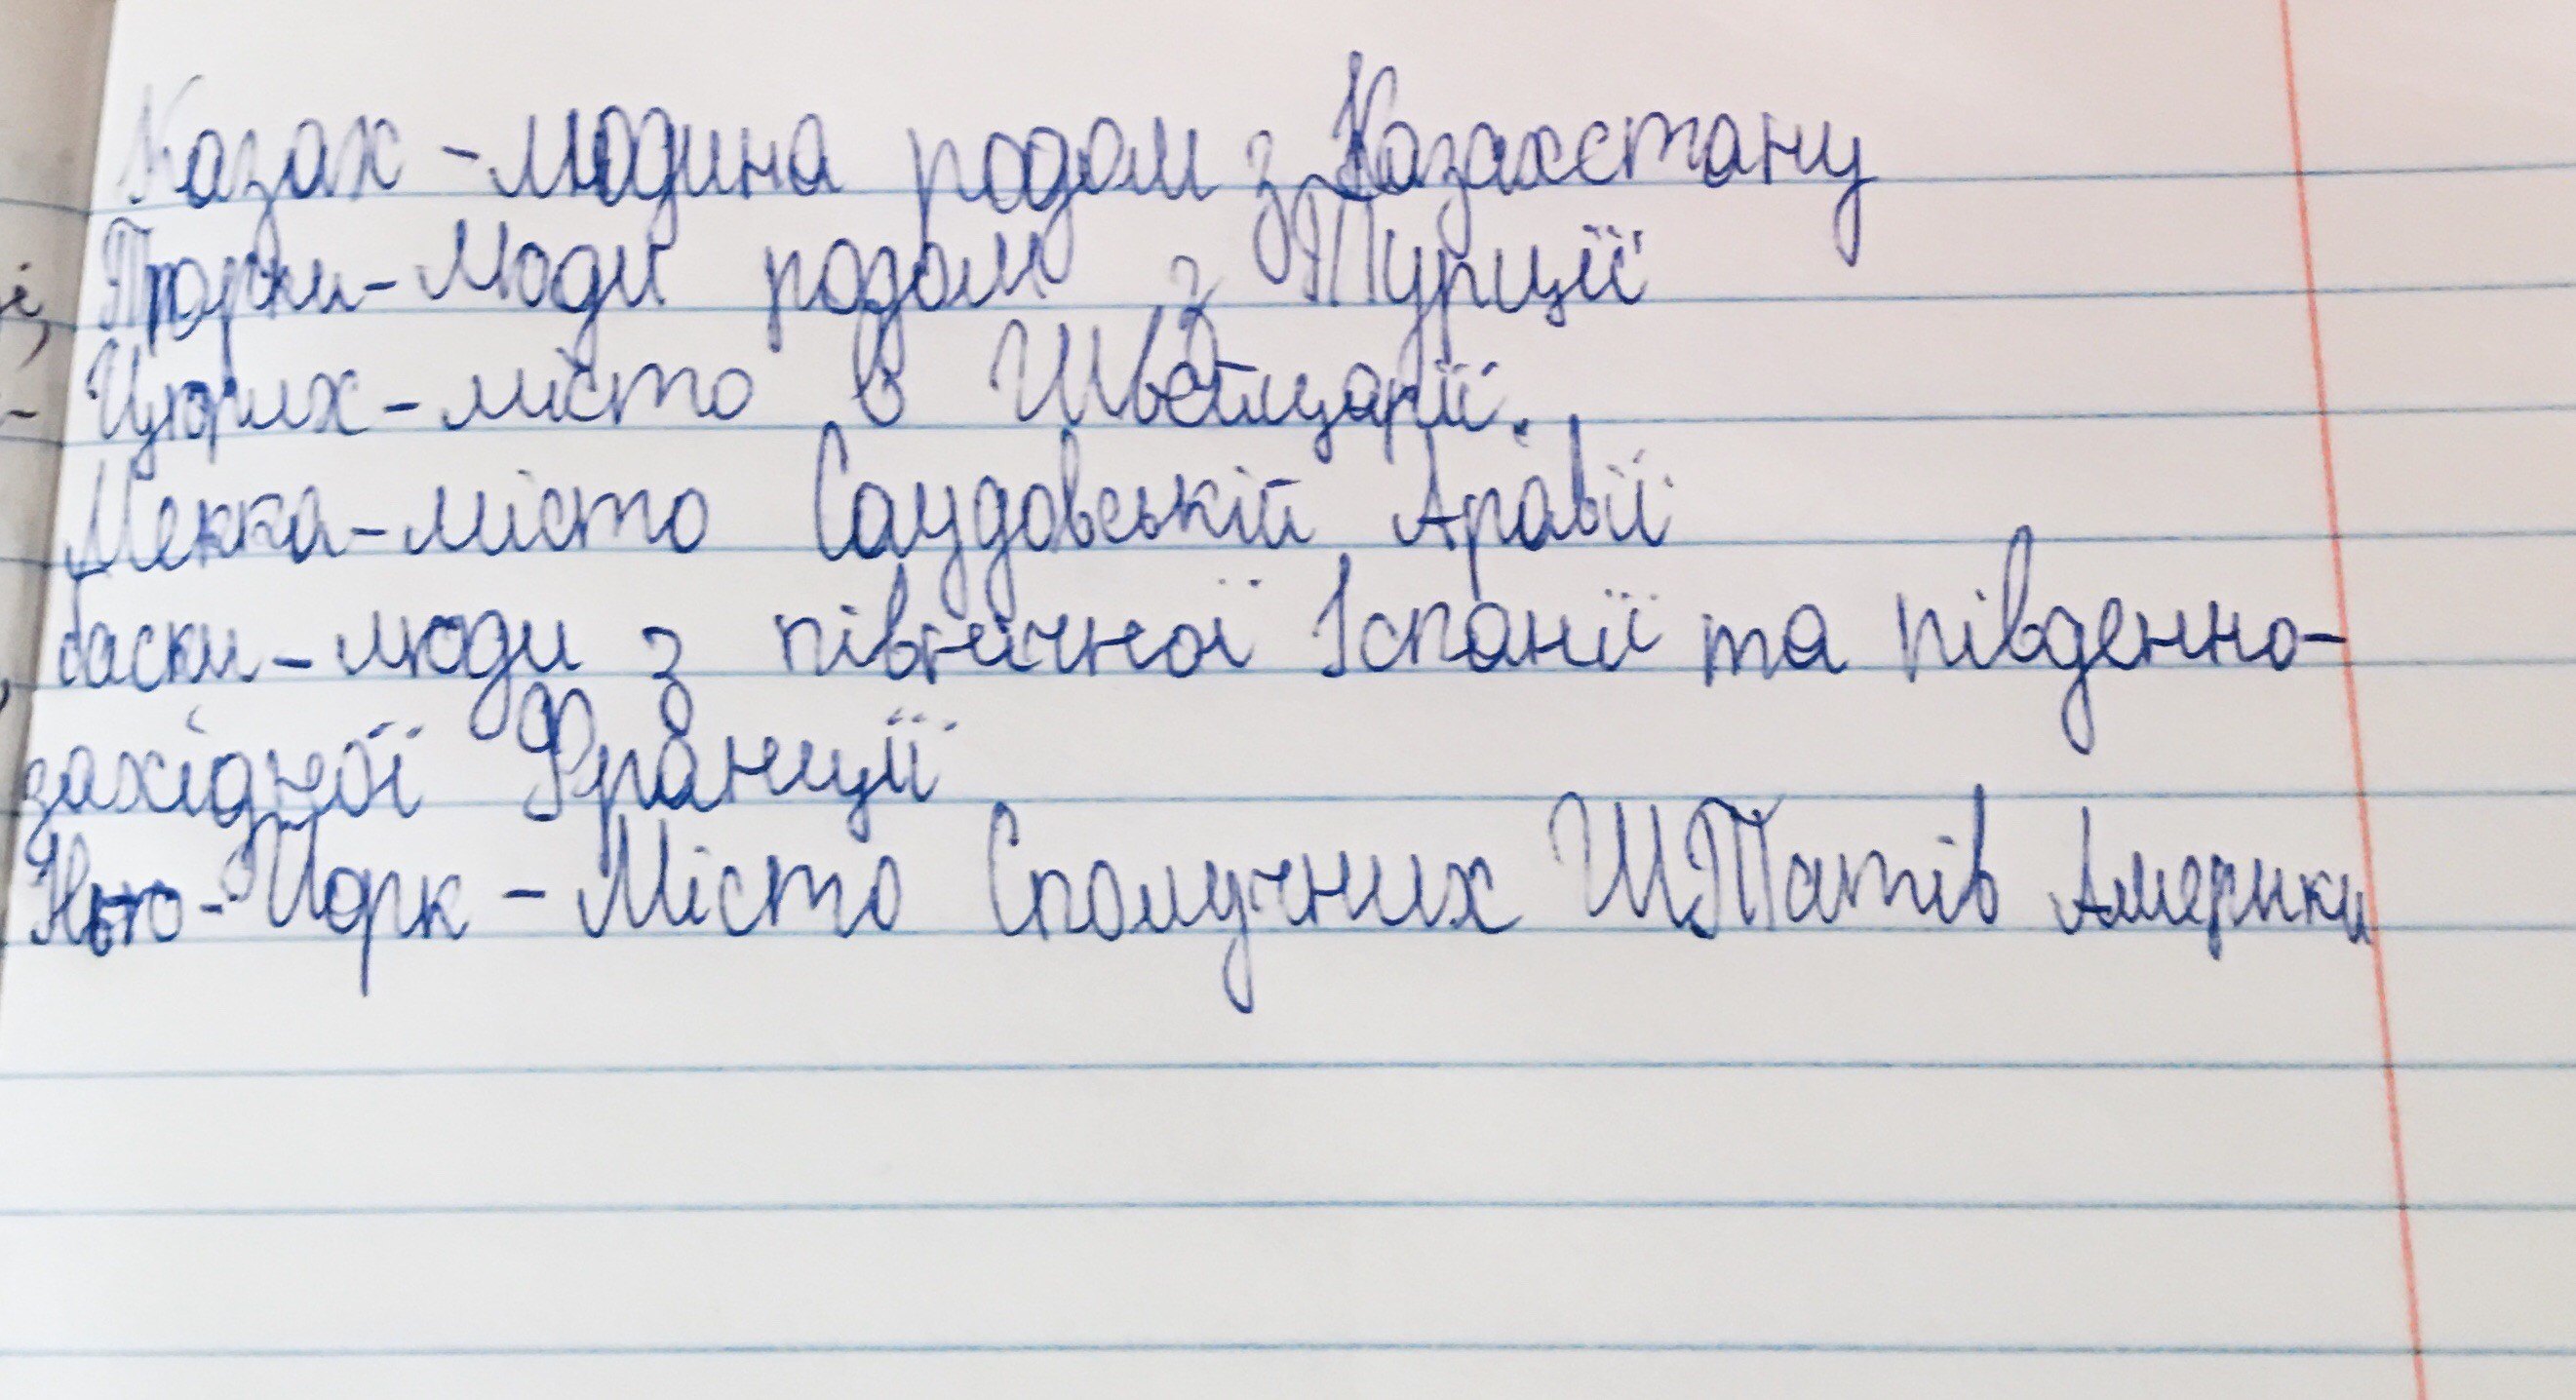 Казах - людина родом з Казахстану
Тюрки - люди родом з Турції
Цюрих - місто в Швейцарії.
Мекка - місто Саудовській Аравії
баски - люди з північної Іспанії та південно-
західної Франції
Нью-Йорк - Місто Сполучних ШТатів Америки